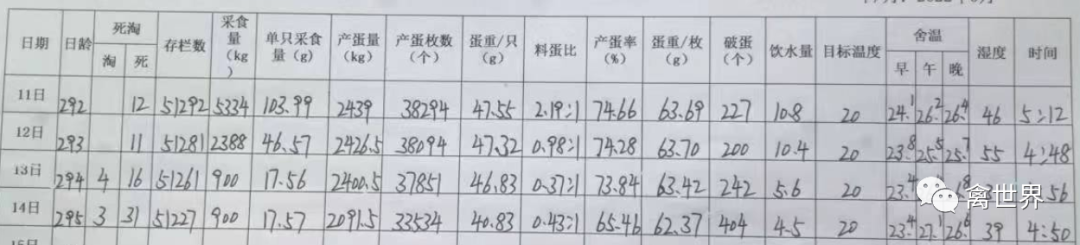 日期 日龄 死淘 淘 死 存栏数 采食量(kg) 单只采食量(g) 产蛋量(kg) 产蛋枚数(个) 蛋重/只(g) 料蛋比 产蛋率(%) 蛋重/枚(g) 破蛋(个) 饮水量 目标温度 舍温 早 午 晚 湿度 时间
11日 292 12 51292 5334 103.99 2439 38294 47.55 2.19:1 74.66 63.69 227 10.8 20 24.1 26.2 26.4 46 5:12
12日 293 11 51281 2388 46.57 2426.5 38094 47.32 0.98:1 74.28 63.70 200 10.4 20 23.8 25.5 25.7 55 4:48
13日 294 4 16 51261 900 17.56 2400.5 37851 46.83 0.37:1 73.84 63.42 242 5.6 20 23.4 56
14日 295 3 31 51227 900 17.57 2091.5 33534 40.83 0.43:1 65.46 62.37 404 4.5 20 23.4 27.1 26.6 39 4:50
禽世界